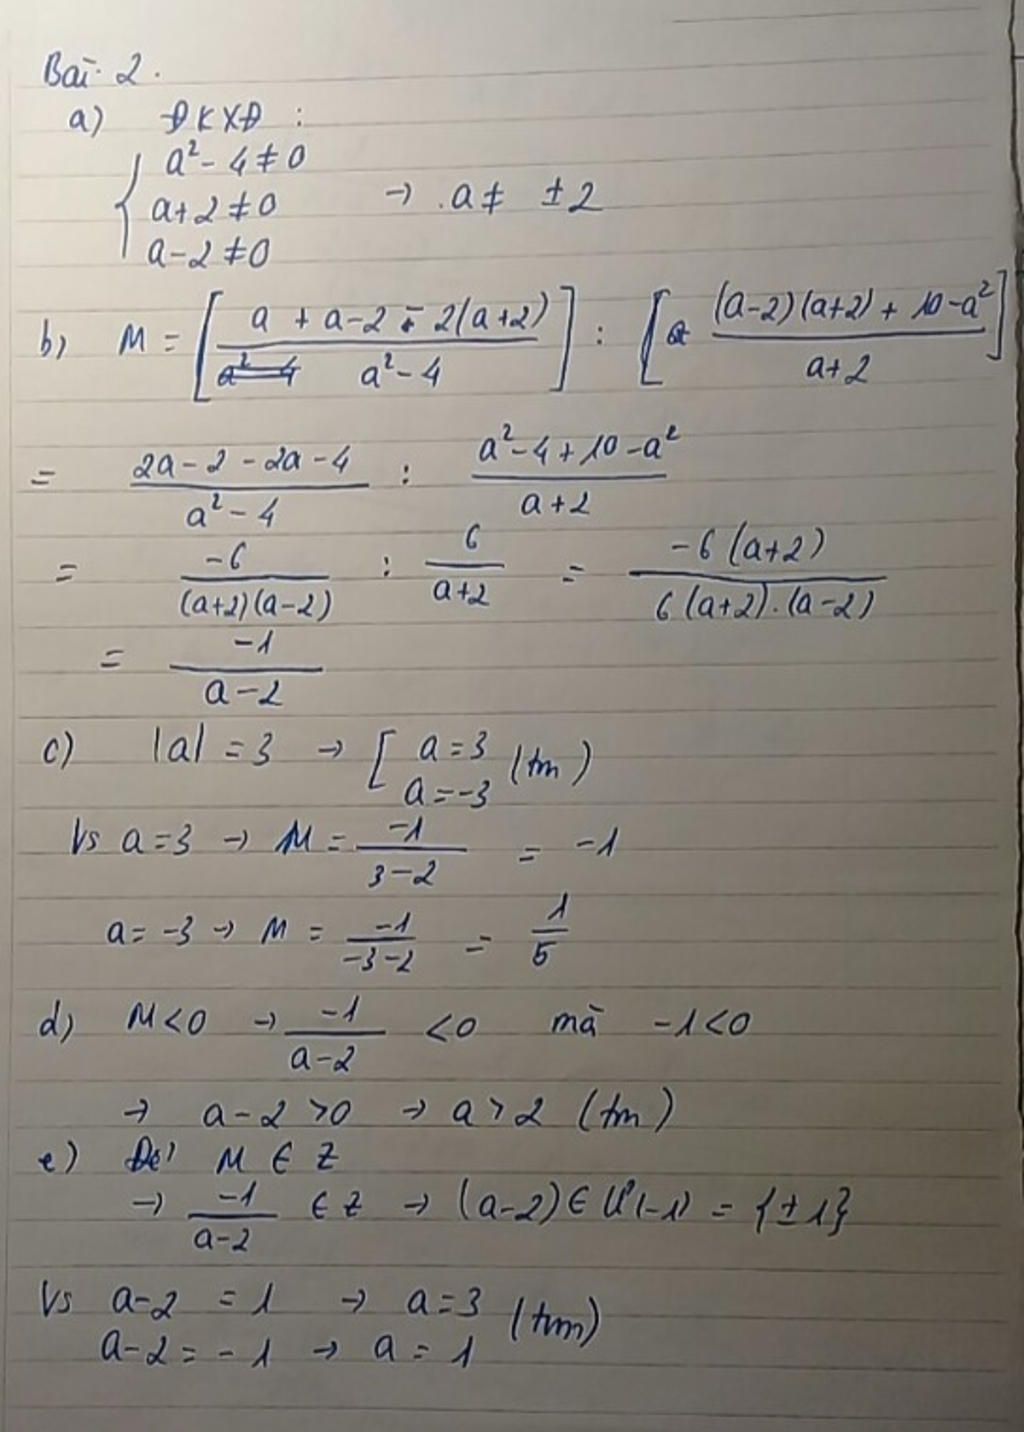 Bài 2.
a) ĐKXĐ :
{ a² - 4 ≠ 0
a + 2 ≠ 0 → a ≠ ± 2
a - 2 ≠ 0
b) M = [ (a + a - 2 - 2(a+2)) / (a² - 4) ] : [ ((a-2)(a+2) + 10 - a²) / (a+2) ]
= (2a - 2 - 2a - 4) / (a² - 4) : (a² - 4 + 10 - a²) / (a + 2)
= -6 / ((a+2)(a-2)) : 6 / (a+2) = -6(a+2) / (6(a+2).(a-2))
= -1 / (a - 2)
c) |a| = 3 → [ a = 3 (tm)
a = -3
Vs a = 3 → M = -1 / (3 - 2) = -1
a = -3 → M = -1 / (-3 - 2) = 1/5
d) M < 0 → -1 / (a - 2) < 0 mà -1 < 0
→ a - 2 > 0 → a > 2 (tm)
e) Để M ∈ Z
→ -1 / (a - 2) ∈ Z → (a - 2) ∈ Ư(-1) = {± 1}
Vs a - 2 = 1 → a = 3 (tm)
a - 2 = - 1 → a = 1